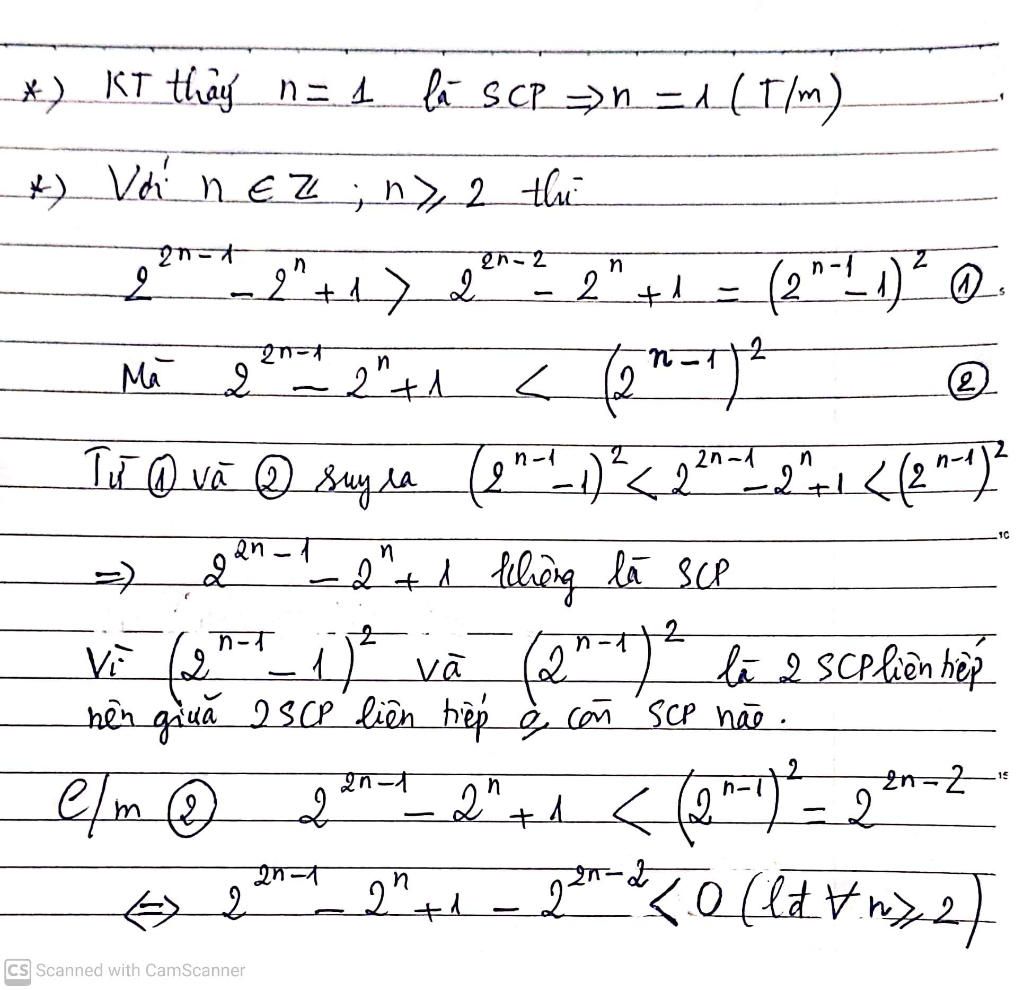 *) KT thấy n = 1 là SCP ⇒ n = 1 (T/m)
*) Với n ∈ Z ; n ⩾ 2 thì
2^{2n-1} - 2^n + 1 > 2^{2n-2} - 2^n + 1 = (2^{n-1} - 1)^2 ①
Mà 2^{2n-1} - 2^n + 1 < (2^{n-1})^2 ②
Từ ① và ② suy ra (2^{n-1} - 1)^2 < 2^{2n-1} - 2^n + 1 < (2^{n-1})^2
10
⇒ 2^{2n-1} - 2^n + 1 không là SCP
Vì (2^{n-1} - 1)^2 và (2^{n-1})^2 là 2 SCP liên tiếp
nên giữa 2 SCP liên tiếp còn SCP nào.
15
C/m ② 2^{2n-1} - 2^n + 1 < (2^{n-1})^2 = 2^{2n-2}
⇔ 2^{2n-1} - 2^n + 1 - 2^{2n-2} < 0 (lđ ∀ n ⩾ 2)
CS Scanned with CamScanner